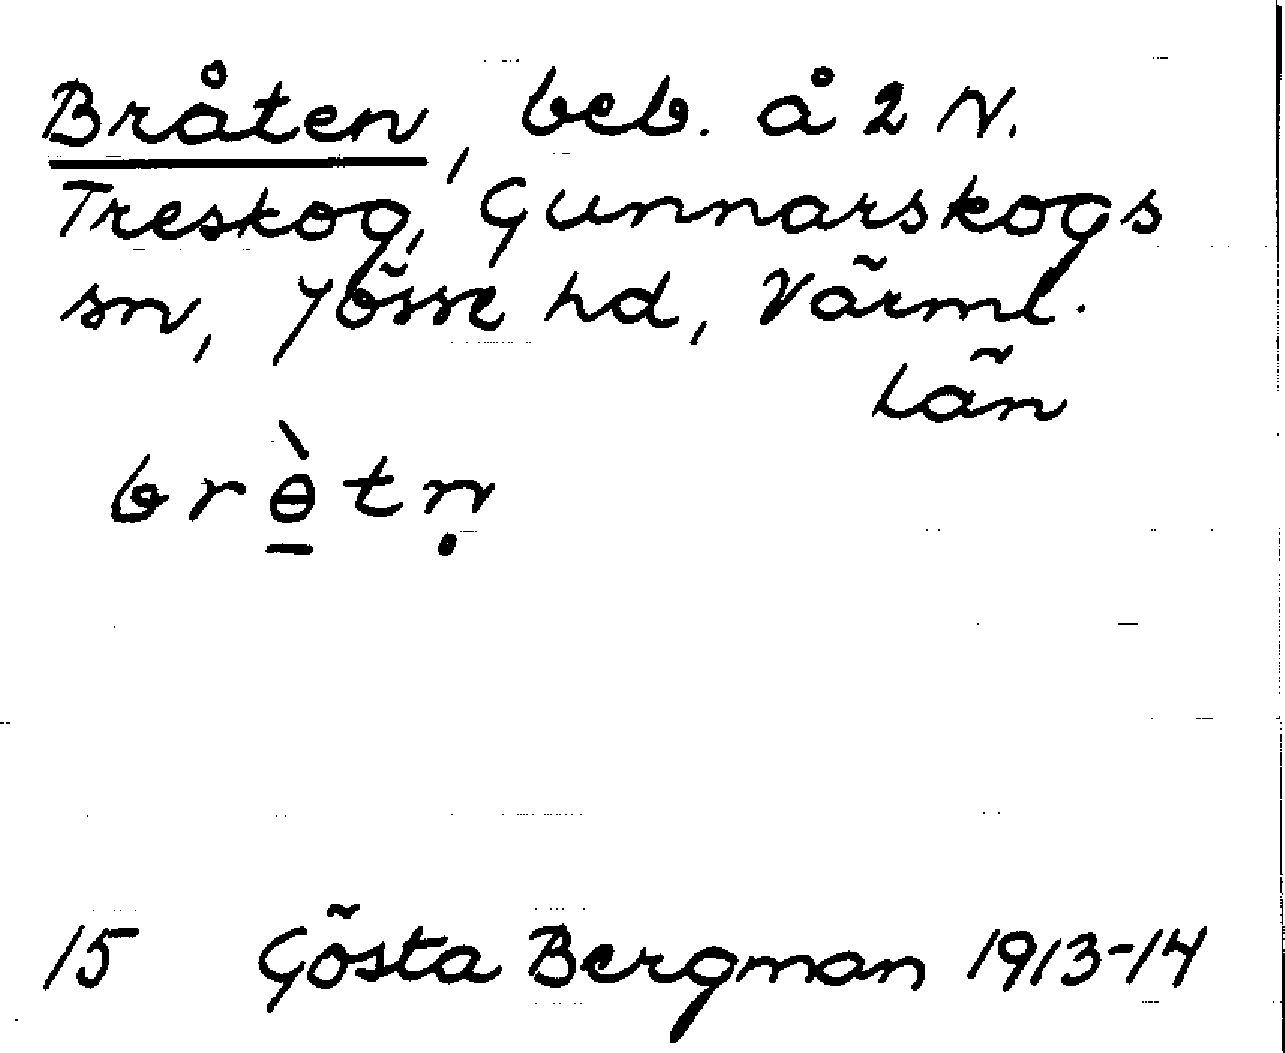 Bråten, beb. å 2 N.
Treskog, Gunnarskogs
sn, Jösse hd, Värml.
län
brɵ̠̀tṇ
15 Gösta Bergman 1913-14